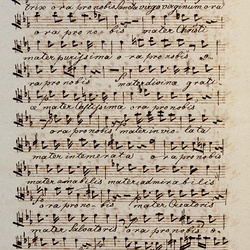 trix ora pro nobis Sancta virgo virginum ora
ora pro no- bis mater Christi
mater purissima ora pro nobis
ora pro nobis mater divina grati-
æ mater castissima ora pro nobis
ora pro nobis mater in vio- lata
mater intemerata ora pro nobis
mater amabilis mater admirabilis
ora pro no- bis mater Creatoris
mater Salvatoris ora pro nobis